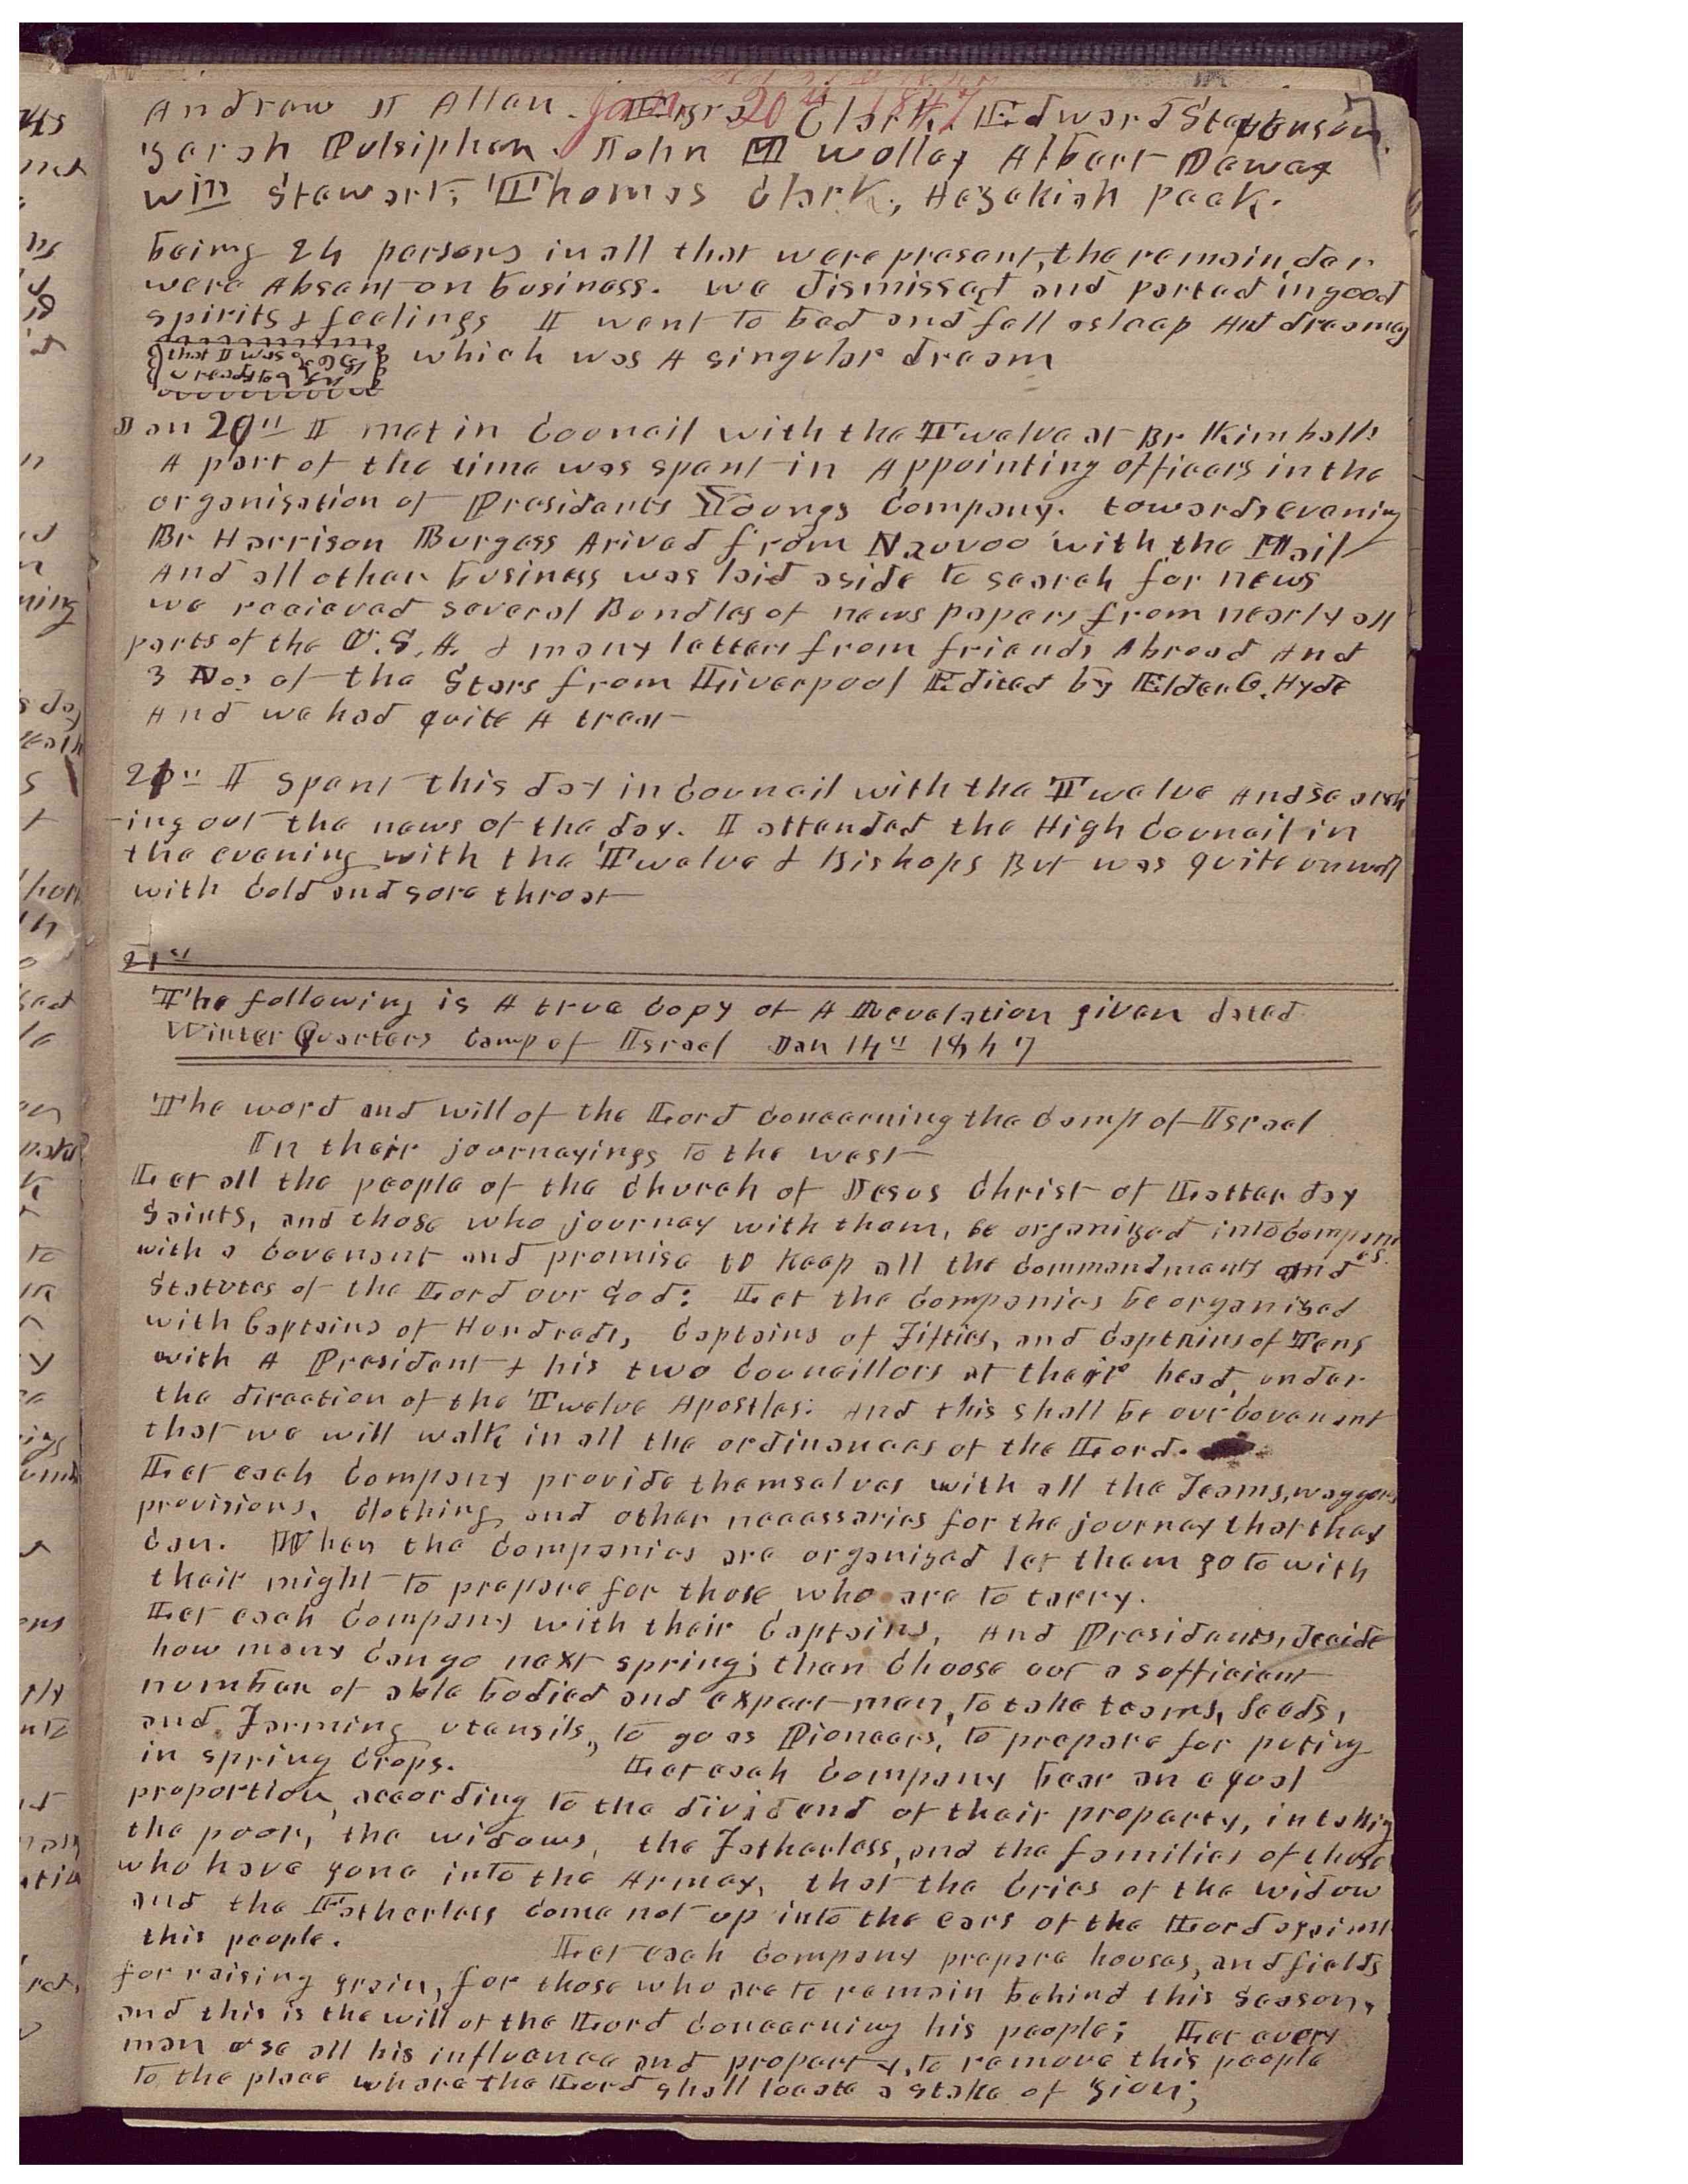 Jan 20th 1847
Andrew J Allan. Ezra Clark. Edward Stephenson.
Zerah Pulsipher. John M Wolley Albert Dewey
Wm Stewart, Thomas Clark, Hezekiah Peck.
being 24 persons in all that were present, the remainder
were Absent on business. We dismissed and parted in good
spirits & feelings I went to bed and fell asleep And dreamed
that I was
which was A singular dream
Jan 20th I met in Council with the Twelve at Br Kimballs
A part of the time was spent in Appointing officers in the
organization of Presidents Youngs Company. towards evening
Br Harrison Burgess Arived from Nauvoo with the Mail
And all other business was laid aside to search for news
we recieved several Bundles of news papers from nearly all
parts of the U.S.A. & many letters from friends Abroad And
3 No? of the Stars from Liverpool Edited by Elder O. Hyde
And we had quite A treat
21st I spent this day in Council with the Twelve and search
-ing out the news of the day. I attended the High Council in
the evening with the Twelve & Bishops But was quite unwell
with Cold and sore throat
21st
The following is A true Copy of A Revelation given dated
Winter Quarters Camp of Israel Jan 14th 1847
The word and will of the Lord Concerning the Camp of Israel
In their journeyings to the west
Let all the people of the Church of Jesus Christ of Latter day
Saints, and those who journey with them, be organized into Companies.
with a Covenant and promise to keep all the Commandments and
Statutes of the Lord our God: Let the Companies be organized
with Captains of Hundreds, Captains of Fifties, and Captains of Tens
with A President & his two Councillors at their head, under
the direction of the Twelve Apostles: And this shall be our Covenant
that we will walk in all the ordinances of the Lord.
Let each Company provide themselves with all the Teams, waggons
provisions, Clothing and other necessaries for the journey that they
Can. When the Companies are organized let them go to with
their might to prepare for those who are to tarry.
Let each Company with their Captains, And Presidents, decide
how many Can go next spring; then Choose out a sufficient
number of able bodied and expert men, to take teams, Seeds,
and Farming utensils, to go as Pioneers, to prepare for puting
in spring Crops. Let each Company bear an equal
proportion, according to the dividend of their property, in takig
the poor, the widows, the Fatherless, and the families of those
who have gone into the Armey, that the Cries of the widow
and the Fatherless Come not up into the ears of the Lord against
this people. Let each Company prepare houses, and fields
for raising grain, for those who are to remain behind this Season,
and this is the will of the Lord Concerning his people; Let every
man use all his influence and property, to remove this people
To the place where the Lord shall locate a stake of Zion;